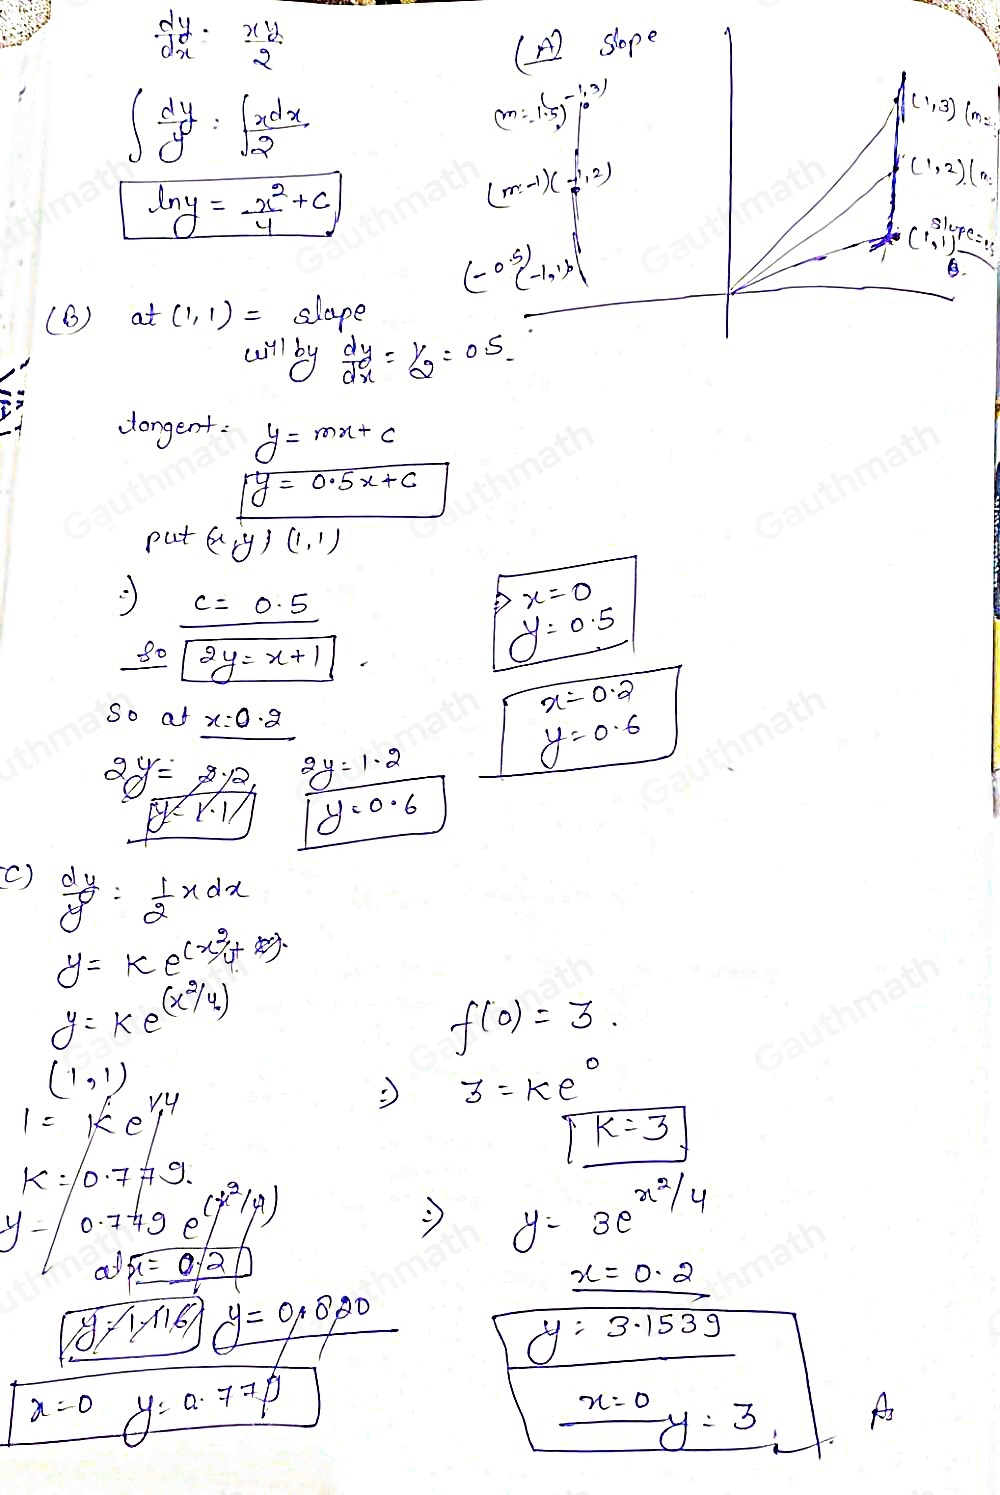 dy/dx = xy/2
∫ dy/y = ∫ xdx/2
lny = x²/4 + c
(A) slope
(m=-1.5) (-1,3)
(m=-1) (-1,2)
(-0.5) (-1,1)
(1,3) (m=
(1,2) (m=
(1,1) slope=.5
(B) at (1,1) = slope
will by dy/dx = 1/2 = 0.5
tangent = y = mx + c
y = 0.5x + c
put (x,y) (1,1)
∴) c = 0.5
so 2y = x+1
⇒ x=0
y=0.5
so at x=0.2
x=0.2
y=0.6
2y = 2.2 2y = 1.2
y=1.1 y=0.6
(C) dy/y = 1/2 x dx
y = K e^(x²/4 +
y = K e^(x²/4)
(1,1)
1 = K e^1/4
K = 0.779.
y = 0.779 e^(x²/4)
at x = 0.2
y=1.116 y=0.820
x=0 y=0.779
f(0) = 3.
∴) 3 = Ke^0
K=3
∴) y = 3e^x²/4
x=0.2
y = 3.1539
x=0 y=3.
Gauthmath